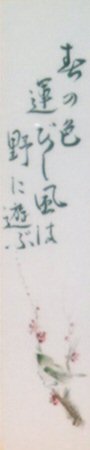 春の色
運びし風は
野に遊ぶ